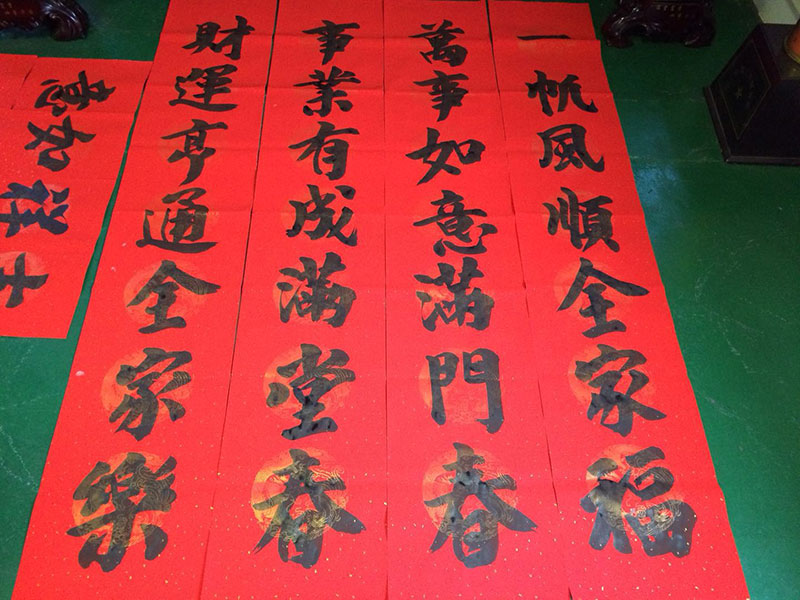 一帆風順全家福
萬事如意滿門春
事業有成滿堂春
財運亨通全家樂
吉祥如意